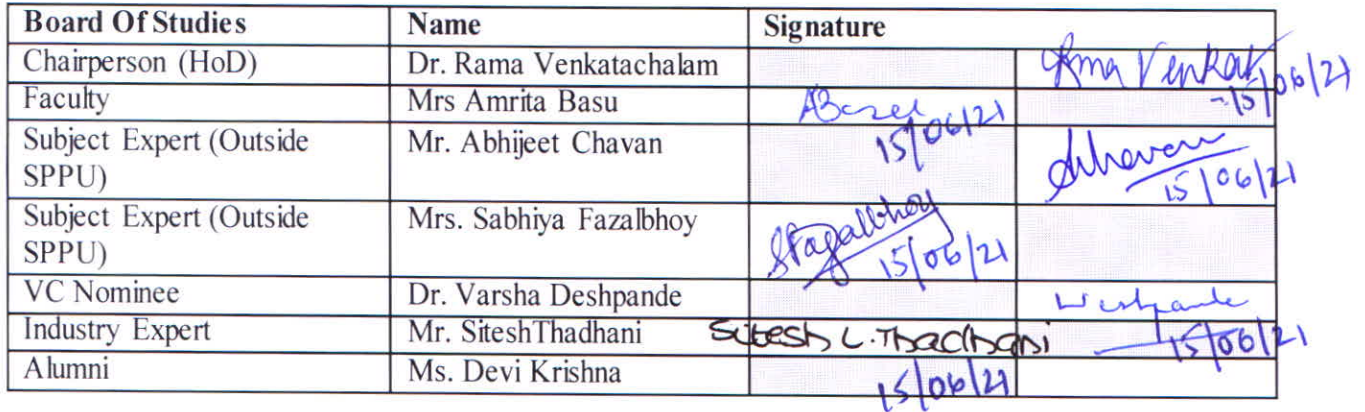 Board Of Studies Name Signature
Chairperson (HoD) Dr. Rama Venkatachalam Rama Venkat
15/06/21
Faculty Mrs Amrita Basu ABasu
15/06/21
Subject Expert (Outside Mr. Abhijeet Chavan
SPPU)
15/06/21
Subject Expert (Outside Mrs. Sabhiya Fazalbhoy SFazalbhoy
SPPU)
15/06/21
VC Nominee Dr. Varsha Deshpande
15/06/21
Industry Expert Mr. SiteshThadhani Sitesh L. Thadhani
15/06/21
Alumni Ms. Devi Krishna